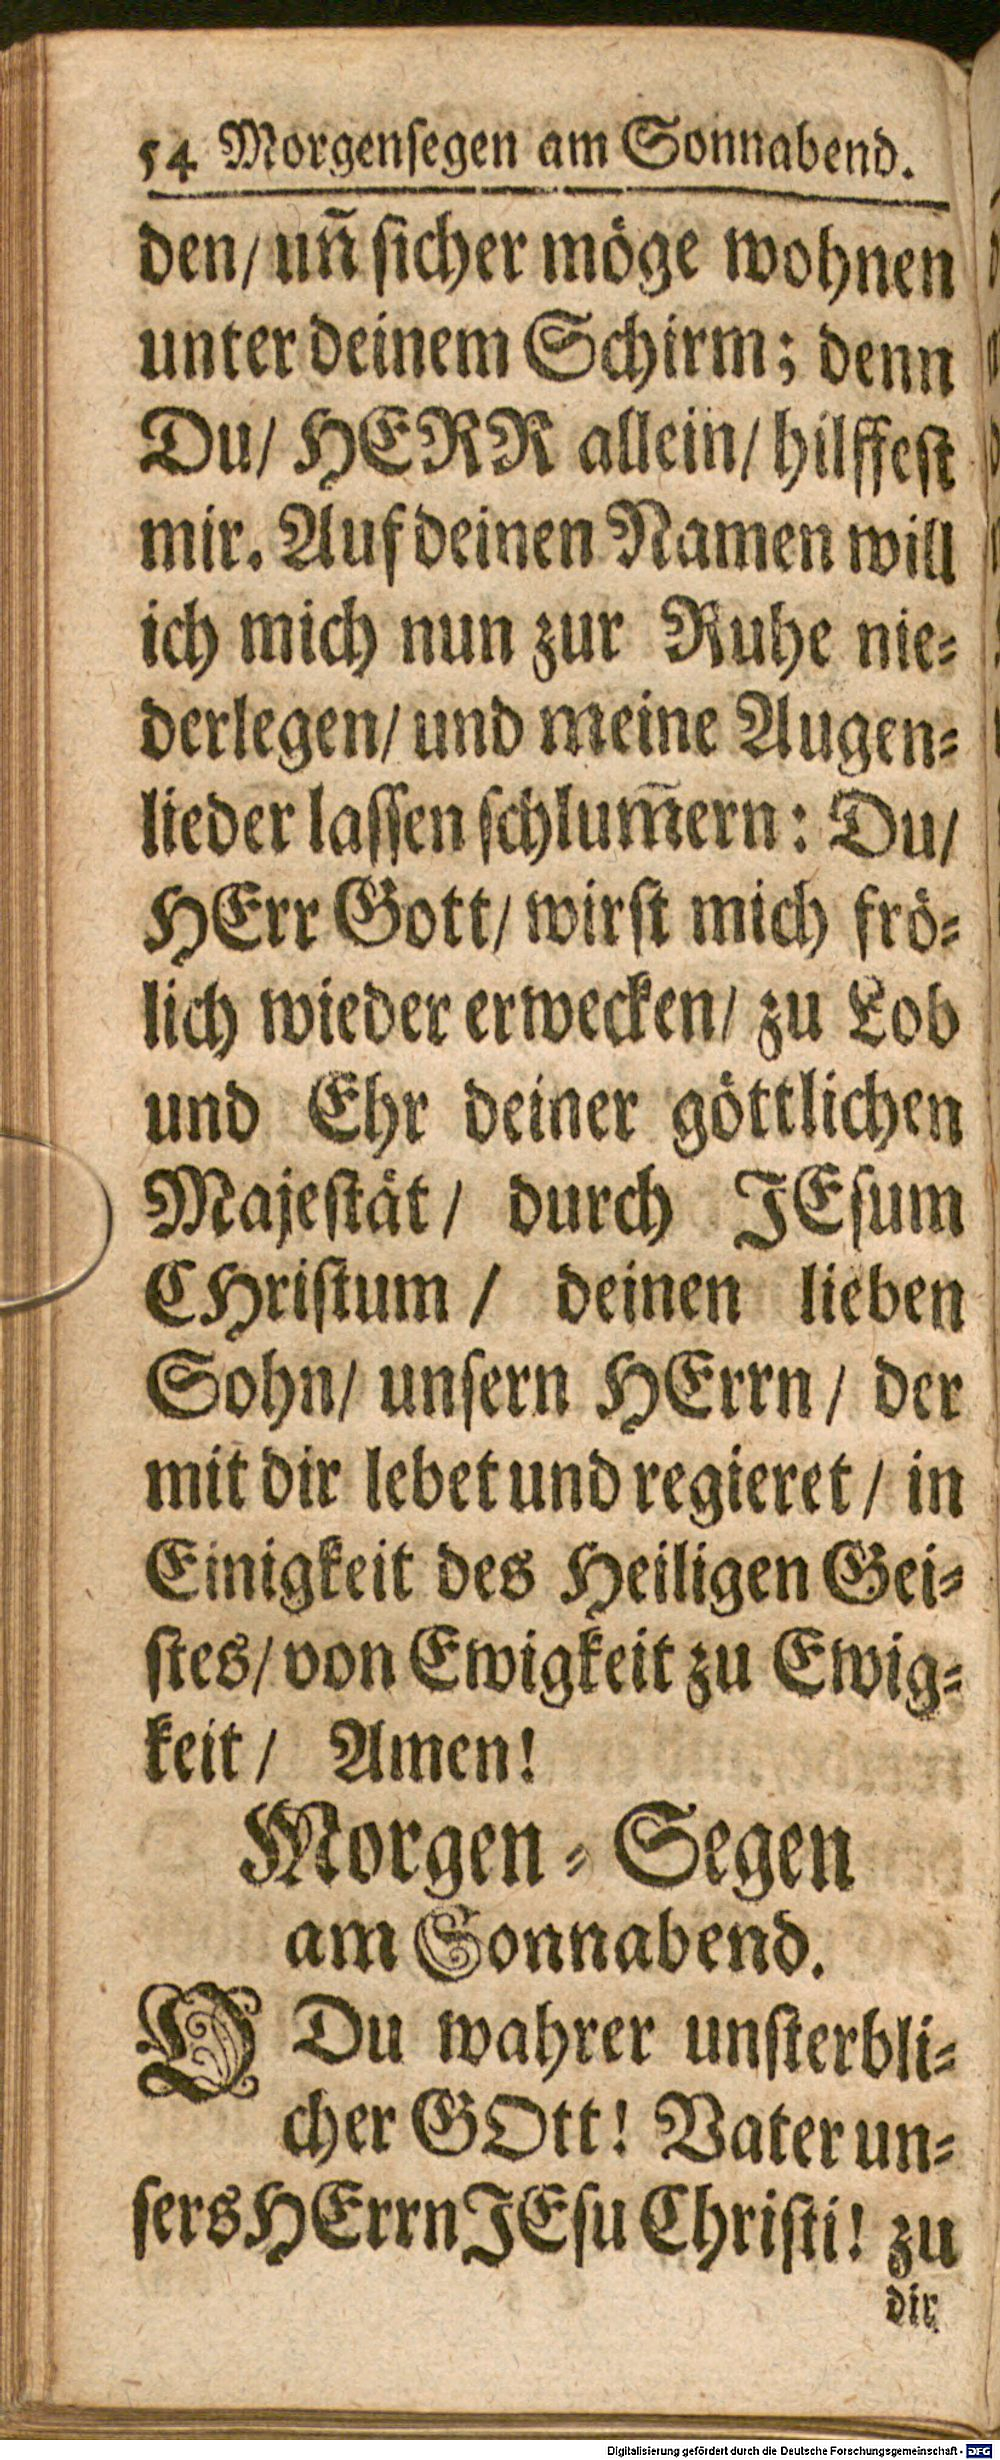 54 Morgenſegen am Sonnabend.
den/ uñ ſicher möge wohnen
unter deinem Schirm; denn
Du/ HERR allein/ hilffeſt
mir. Auf deinen Namen will
ich mich nun zur Ruhe nie-
derlegen/ und meine Augen-
lieder laſſen ſchlum̃ern: Du/
HErr Gott/ wirſt mich frö-
lich wieder erwecken/ zu Lob
und Ehr deiner göttlichen
Majeſtät/ durch JEſum
CHriſtum / deinen lieben
Sohn/ unſern HErrn / der
mit dir lebet und regieret / in
Einigkeit des Heiligen Gei-
ſtes/ von Ewigkeit zu Ewig-
keit / Amen!
Morgen-Segen
am Sonnabend.
O Du wahrer unſterbli-
cher GOtt! Vater un-
ſers HErrn JEſu Chriſti! zu
dir
Digitalisierung gefördert durch die Deutsche Forschungsgemeinschaft - DFG